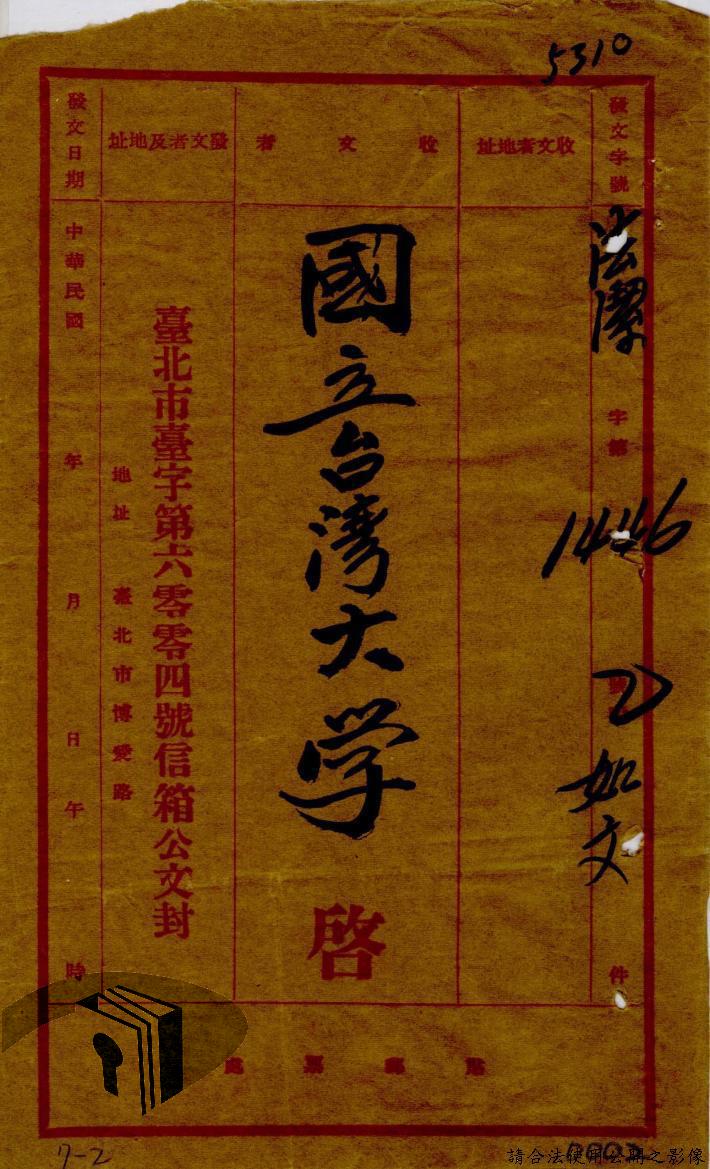 5310
發文字號
法潔
字第
1446
號
如文
件
收文者地址
收文者
國立台湾大学
啓
發文者及地址
臺北市臺字第六零零四號信箱公文封
地址 臺北市博愛路
發文日期
中華民國 年 月 日 午 時
貼郵票處
7-2
請合法使用公開之影像